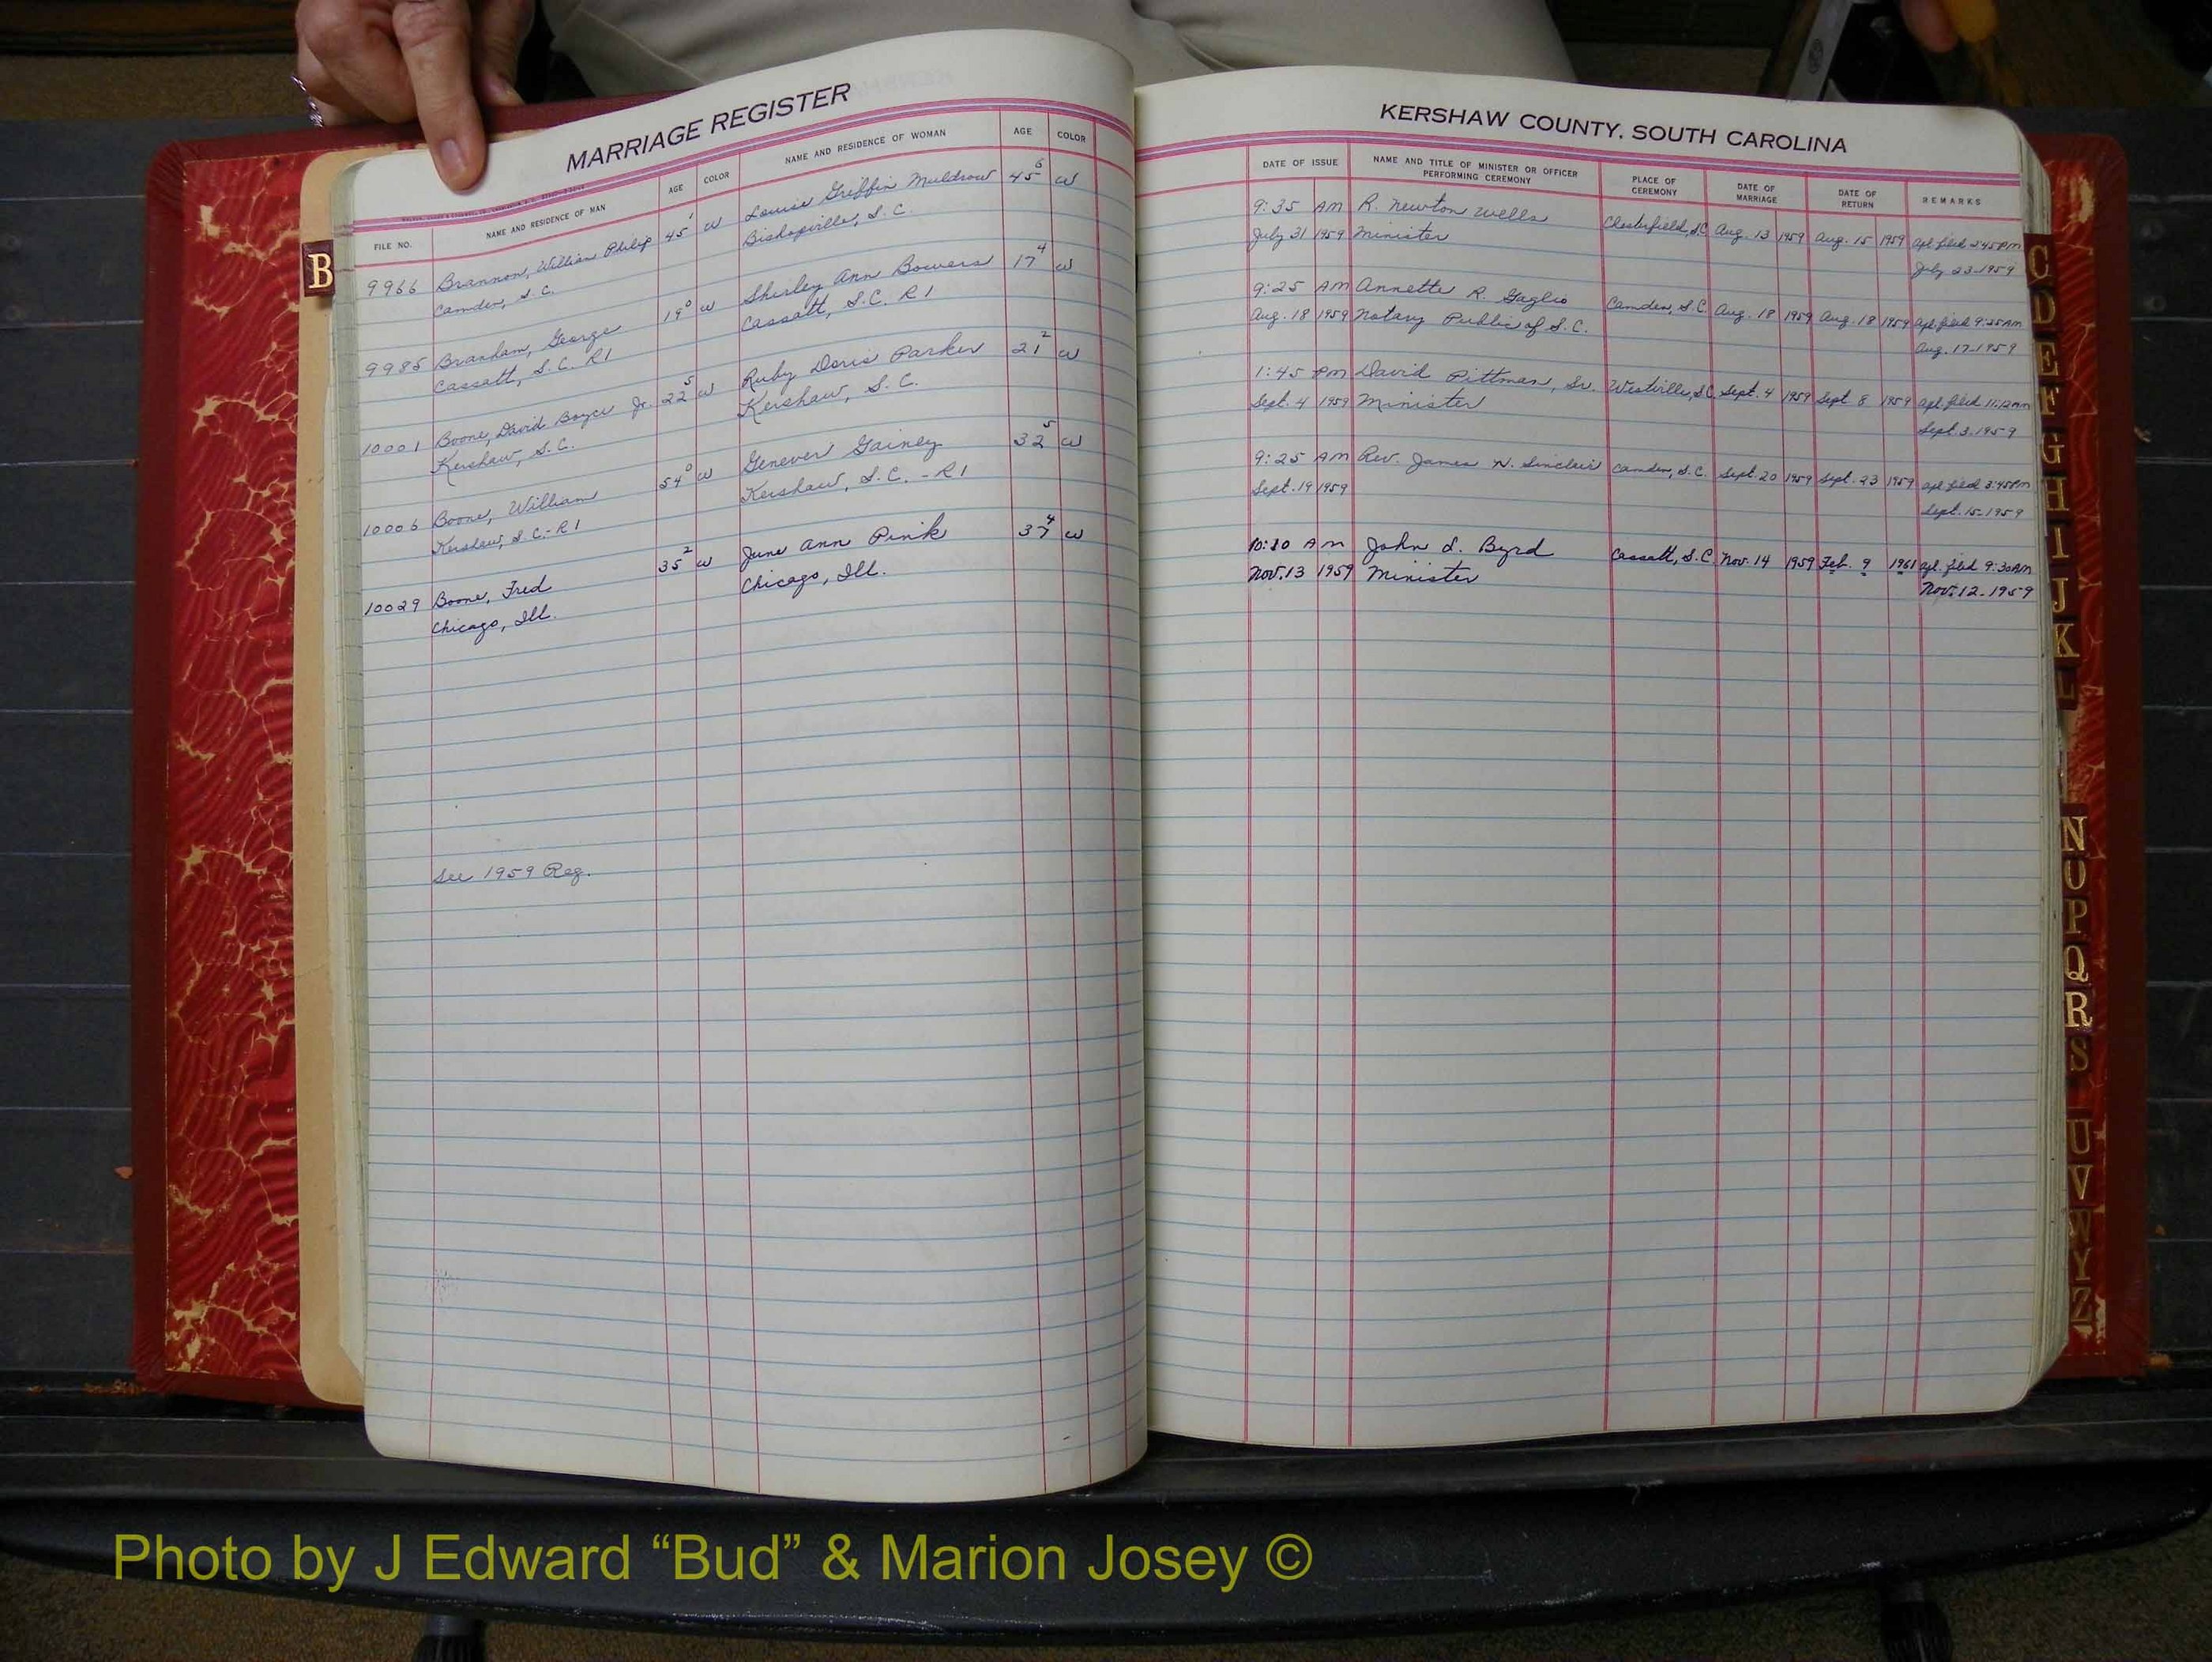 MARRIAGE REGISTER
FILE NO. NAME AND RESIDENCE OF MAN AGE COLOR NAME AND RESIDENCE OF WOMAN AGE COLOR
9966 Brannon, William Philip 45 1 W Louise Griffin Muldrow 45 6 W
Camden, S.C. Bishopville, S.C.
9985 Branham, George 19 0 W Shirley Ann Bowers 17 4 W
Cassatt, S.C. R1 Cassatt, S.C. R1
10001 Boone, David Boyce Jr. 22 5 W Ruby Doris Parker 21 2 W
Kershaw, S.C. Kershaw, S.C.
10006 Boone, William 54 0 W Genever Gainey 32 5 W
Kershaw, S.C.-R1 Kershaw, S.C. - R1
10029 Boone, Fred 35 2 W June Ann Pink 37 4 W
Chicago, Ill. Chicago, Ill.
See 1959 Reg.
KERSHAW COUNTY, SOUTH CAROLINA
DATE OF ISSUE NAME AND TITLE OF MINISTER OR OFFICER PERFORMING CEREMONY PLACE OF CEREMONY DATE OF MARRIAGE DATE OF RETURN REMARKS
9:35 AM R. Newton Wells Chesterfield, S.C. Aug. 13 1959 Aug. 15 1959 apl. filed 2:45 PM
July 31 1959 Minister July 23-1959
9:25 AM Annette R. Gaglio Camden, S.C. Aug. 18 1959 Aug. 18 1959 apl. filed 9:25 AM
Aug. 18 1959 Notary Public of S.C. Aug. 17-1959
1:45 PM David Pittman, Sr. Westville, S.C. Sept. 4 1959 Sept 8 1959 apl. filed 11:12 AM
Sept. 4 1959 Minister Sept. 3-1959
9:25 AM Rev. James N. Sinclair Camden, S.C. Sept. 20 1959 Sept. 23 1959 apl filed 3:45 PM
Sept. 19 1959 Sept. 15-1959
10:10 AM John S. Byrd Cassatt, S.C. Nov. 14 1959 Feb. 9 1961 apl. filed 9:30 AM
Nov. 13 1959 Minister Nov. 12-1959
B
C
D
E
F
G
H
I
J
K
L
N
O
P
Q
R
S
U
V
W
Y
Z
Photo by J Edward “Bud” & Marion Josey ©